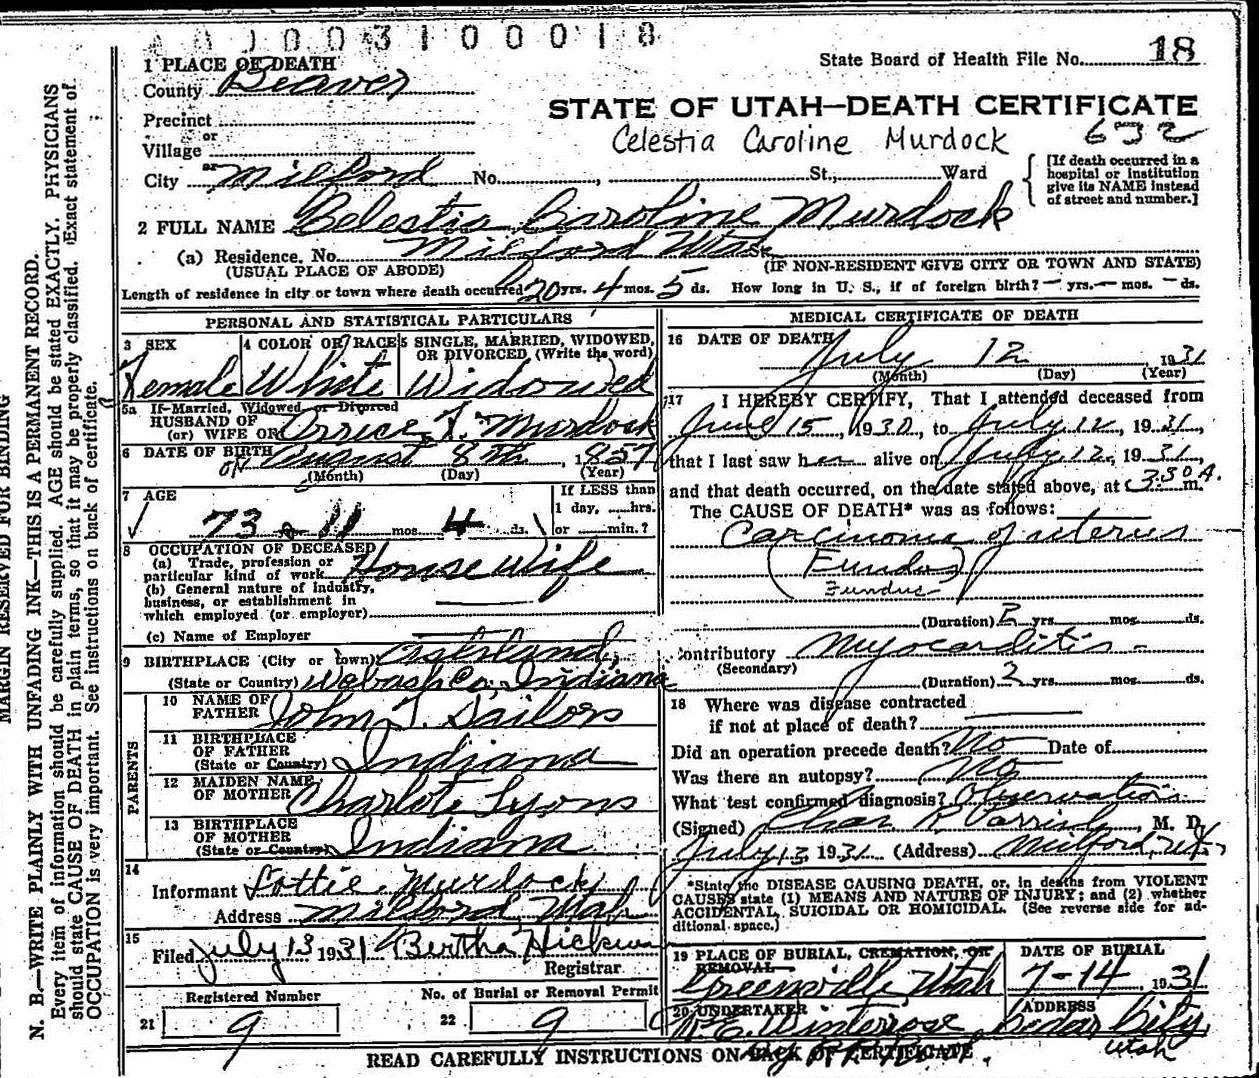 0 0 3 1 0 0 0 1 8
State Board of Health File No. 18
1 PLACE OF DEATH
County Beaver
STATE OF UTAH—DEATH CERTIFICATE
Precinct
Celestia Caroline Murdock 632
or
Village
or
City Milford No. , St., Ward
[If death occurred in a
hospital or institution
give its NAME instead
of street and number.]
2 FULL NAME Celestia Caroline Murdock
(a) Residence. No. Milford Utah
(USUAL PLACE OF ABODE) (IF NON-RESIDENT GIVE CITY OR TOWN AND STATE)
Length of residence in city or town where death occurred 20 yrs. 4 mos. 5 ds. How long in U. S., if of foreign birth? — yrs. — mos. — ds.
PERSONAL AND STATISTICAL PARTICULARS
3 SEX
Female
4 COLOR OR RACE
White
5 SINGLE, MARRIED, WIDOWED,
OR DIVORCED (Write the word)
Widowed
5a If Married, Widowed or Divorced
HUSBAND OF
(or) WIFE OF Orrice Murdock
6 DATE OF BIRTH August 8th, 1857
(Month) (Day) (Year)
7 AGE
73 11 mos. 4 ds.
If LESS than
1 day, hrs.
or min.?
8 OCCUPATION OF DECEASED
(a) Trade, profession or
particular kind of work House wife
(b) General nature of industry,
business, or establishment in
which employed (or employer)
(c) Name of Employer
9 BIRTHPLACE (City or town)
(State or Country) Wabash Co, Indiana
PARENTS
10 NAME OF
FATHER John T. Sailors
11 BIRTHPLACE
OF FATHER
(State or Country) Indiana
12 MAIDEN NAME
OF MOTHER Charlote Lyons
13 BIRTHPLACE
OF MOTHER
(State or Country) Indiana
14
Informant Lottie Murdock
Address Milford Utah
15
Filed July 13 1931 Bertha
Registrar
Registered Number
21 9
No. of Burial or Removal Permit
22 9
MEDICAL CERTIFICATE OF DEATH
16 DATE OF DEATH
July 12 1931
(Month) (Day) (Year)
17 I HEREBY CERTIFY, That I attended deceased from
June 15, 1930, to July 12, 1931,
that I last saw her alive on July 12, 1931,
and that death occurred, on the date stated above, at 3:30 A. m.
The CAUSE OF DEATH* was as follows:
Carcinoma of uterus
(Fundus)
Fundus
(Duration) 2 yrs. mos. ds.
Contributory Myocarditis
(Secondary)
(Duration) 2 yrs. mos. ds.
18 Where was disease contracted
if not at place of death?
Did an operation precede death? No Date of
Was there an autopsy? No
What test confirmed diagnosis? Observation
(Signed) Chas R Parrish, M. D.
July 13, 1931 (Address) Milford, Ut.
*State the DISEASE CAUSING DEATH, or, in deaths from VIOLENT
CAUSES state (1) MEANS AND NATURE OF INJURY; and (2) whether
ACCIDENTAL, SUICIDAL OR HOMICIDAL. (See reverse side for ad-
ditional space.)
19 PLACE OF BURIAL, CREMATION, OR
REMOVAL
Greenville Utah
DATE OF BURIAL
7-14, 1931
20 UNDERTAKER
Winterrose
ADDRESS
Cedar City,
Utah
READ CAREFULLY INSTRUCTIONS ON BACK OF CERTIFICATE.
MARGIN RESERVED FOR BINDING
N. B.—WRITE PLAINLY WITH UNFADING INK—THIS IS A PERMANENT RECORD.
Every item of information should be carefully supplied. AGE should be stated EXACTLY. PHYSICIANS
should state CAUSE OF DEATH in plain terms, so that it may be properly classified. Exact statement of
OCCUPATION is very important. See instructions on back of certificate.